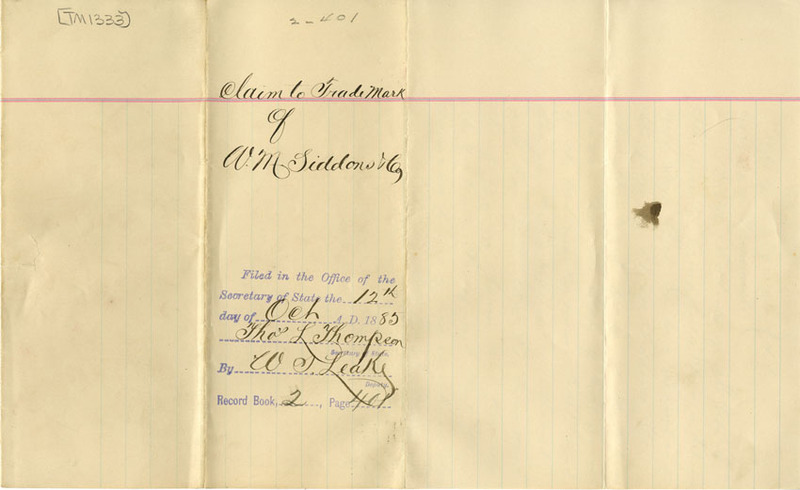 [TM1333]
2-401
Claim to Trade Mark
of
W. M. Siddons & Co
Filed in the Office of the
Secretary of State the 12th
day of Oct A.D. 1883
Thos L Thompson
Secretary of State,
By W T. Leake
Deputy.
Record Book, 2, Page 401